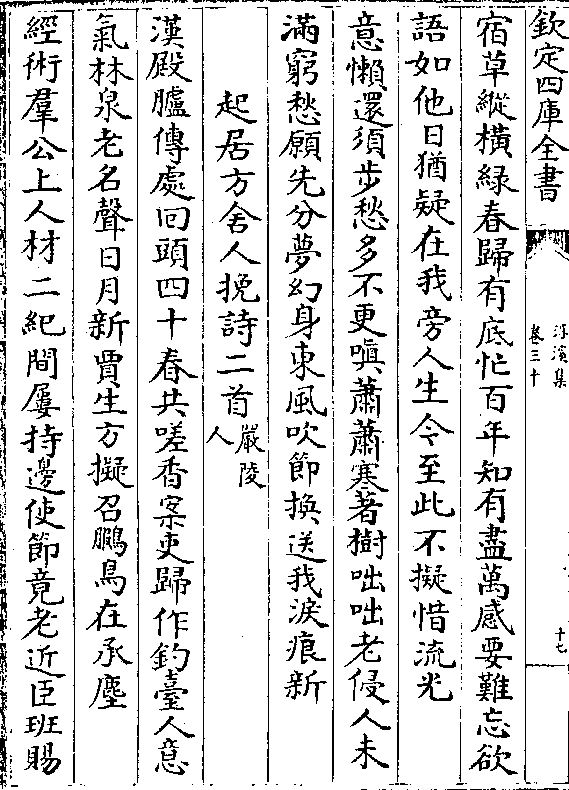 欽定四庫全書
浮溪集
卷三十
十七
宿草縱橫緑春歸有底忙百年知有盡萬感要難忘欲
語如他日猶疑在我旁人生今至此不擬惜流光
意懶還須步愁多不更嗔蕭蕭寒著樹咄咄老侵人未
滿窮愁願先分夢幻身東風吹節換送我淚痕新
起居方舍人挽詩二首嚴陵人
漢殿臚傳處回頭四十春共嗟香案吏歸作釣臺人意
氣林泉老名聲日月新賈生方擬召鵩鳥在承塵
經術羣公上人材二紀間屢持邊使節竟老近臣班賜